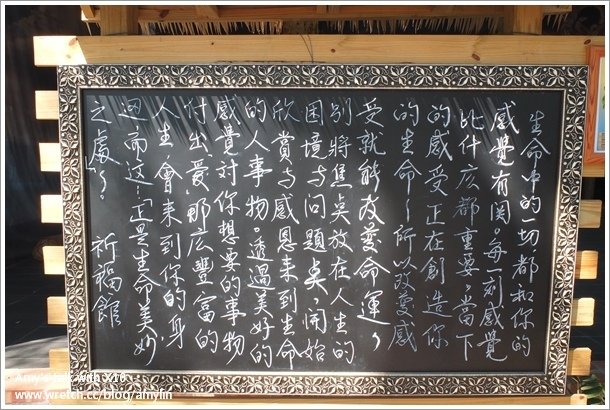 生命中的一切都和你的
感覺有關。每一刻感覺
比什庅都重要,當下
的感受正在創造你
的生命~所以改變感
受就能改變命運~
別將焦奌放在人生的
困境与問題奌,開始
欣賞与感恩来到生命
的人事物。透過美好的
感覺对你想要的事物
付出愛,那庅豐富的
人生,會来到你的身
邊,而這,正是生命美妙
之處~。 祈福館
www.wretch.cc/blog/amylin